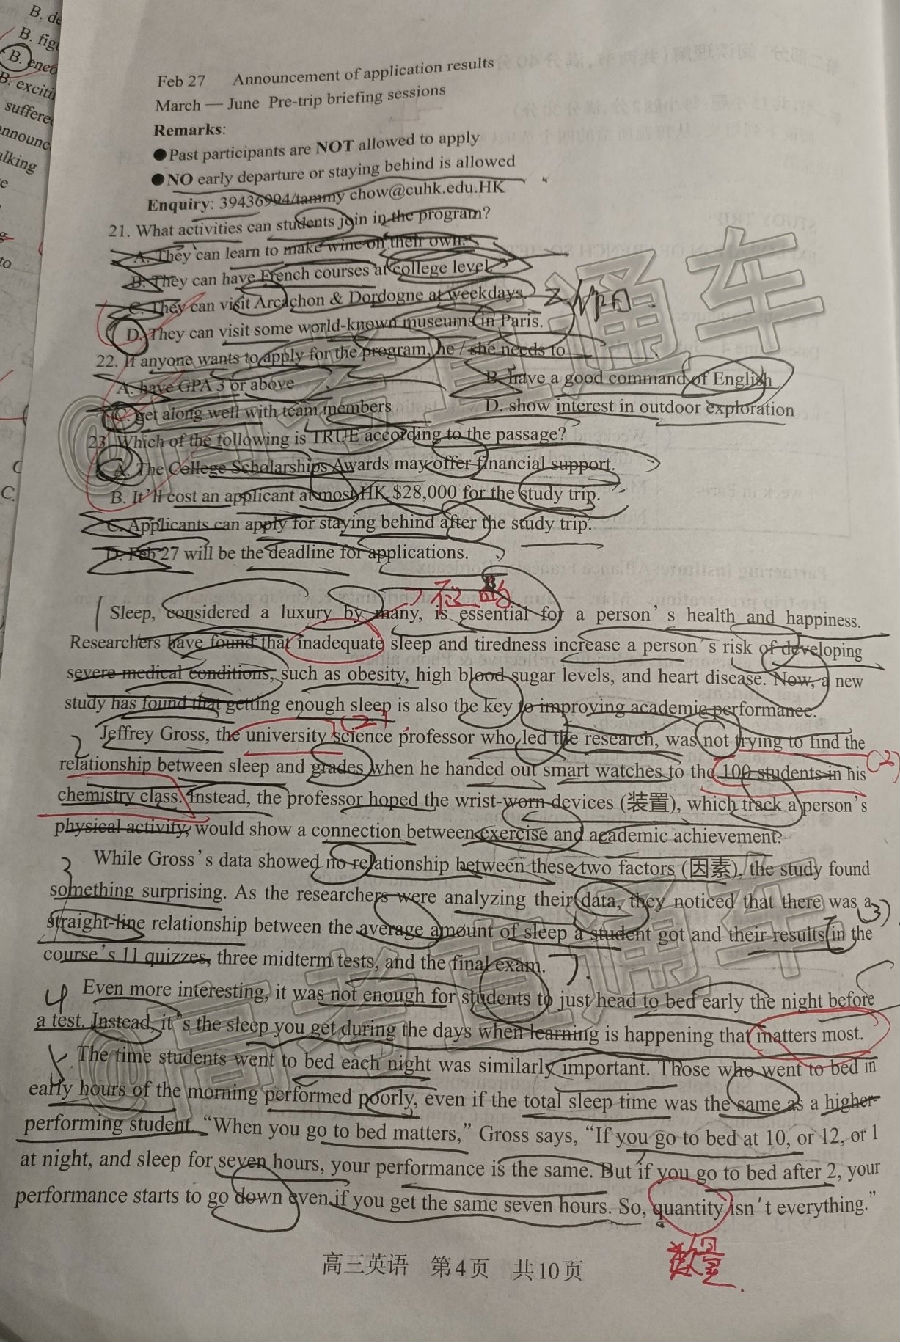 B. de
B. fig
B. ened
B. exciti
suffere
nnounc
lking
e
to
C
C.
Feb 27 Announcement of application results
March — June Pre-trip briefing sessions
Remarks:
●Past participants are NOT allowed to apply
●NO early departure or staying behind is allowed
Enquiry: 39436994/tammy chow@cuhk.edu.HK
21. What activities can students join in the program?
A. They can learn to make wine on their own.
B. They can have French courses at college level.
C. They can visit Arcachon & Dordogne at weekdays.
D. They can visit some world-known museums in Paris.
22. If anyone wants to apply for the program, he / she needs to
A. have GPA 3 or above B. have a good command of English
C. get along well with team members D. show interest in outdoor exploration
23. Which of the following is TRUE according to the passage?
A. The College Scholarships Awards may offer financial support.
B. It'll cost an applicant at most HK $28,000 for the study trip.
C. Applicants can apply for staying behind after the study trip.
D. Feb 27 will be the deadline for applications.
B
Sleep, considered a luxury by many, is essential for a person's health and happiness.
Researchers have found that inadequate sleep and tiredness increase a person's risk of developing
severe medical conditions, such as obesity, high blood sugar levels, and heart disease. Now, a new
study has found that getting enough sleep is also the key to improving academic performance.
Jeffrey Gross, the university science professor who led the research, was not trying to find the
relationship between sleep and grades when he handed out smart watches to the 100 students in his
chemistry class. Instead, the professor hoped the wrist-worn devices (装置), which track a person's
physical activity, would show a connection between exercise and academic achievement.
While Gross's data showed no relationship between these two factors (因素), the study found
something surprising. As the researchers were analyzing their data, they noticed that there was a
straight-line relationship between the average amount of sleep a student got and their results in the
course's 11 quizzes, three midterm tests, and the final exam.
Even more interesting, it was not enough for students to just head to bed early the night before
a test. Instead, it's the sleep you get during the days when learning is happening that matters most.
The time students went to bed each night was similarly important. Those who went to bed in
early hours of the morning performed poorly, even if the total sleep time was the same as a higher-
performing student. "When you go to bed matters," Gross says, "If you go to bed at 10, or 12, or 1
at night, and sleep for seven hours, your performance is the same. But if you go to bed after 2, your
performance starts to go down even if you get the same seven hours. So, quantity isn't everything."
数量
高三英语 第4页 共10页